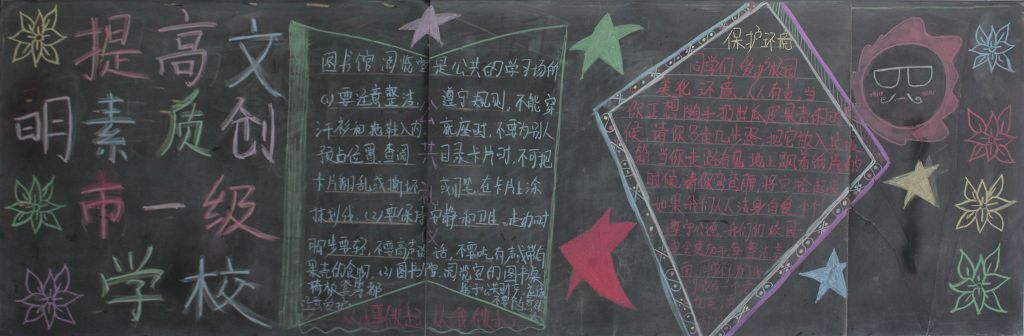 提高文
明素质创
市一级
学校
图书馆阅览室是公共的学习场所
(1)要注意整洁,遵守规则,不能穿
汗衫和拖鞋入内,就座时,不要为别人
预占位置,查阅目录卡片时,不可把
卡片翻乱或撕坏,或用笔在卡片上涂
抹划线,(2)要保持安静和卫生,走动时
脚步要轻,不要高声谈话,不要吃有声或带
果壳的食物,(3)图书馆、阅览室的图书
属于公共财
从小事做起
保护环境
同学们爱护校园
美化环境,人人有责,当
你正想随手扔出瓜皮果壳的时
候,请你多走几步路,把它放入
箱,当你走路看见地上飘着纸片的
时候,请你弯弯腰,将它捡起
如果我们人人洁身自爱,个个
遵守公德,我们的校园